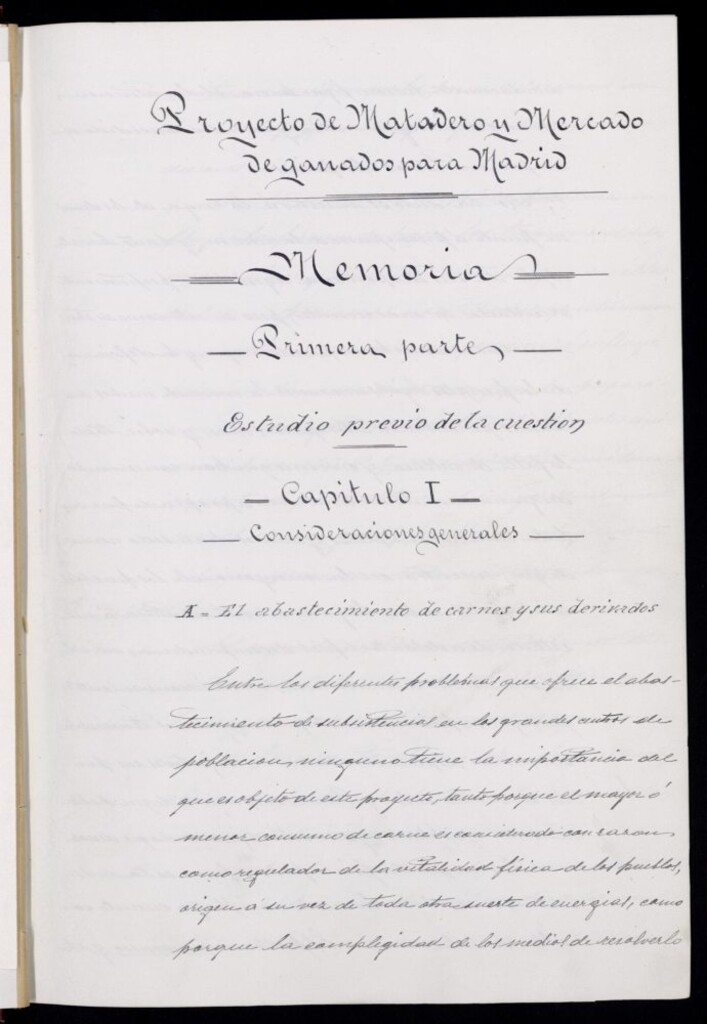 Proyecto de Matadero y Mercado
de ganados para Madrid
Memoria
Primera parte
Estudio previo de la cuestion
Capitulo I
Consideraciones generales
A = El abastecimiento de carnes y sus derivados
Entre los diferentes problemas que ofrece el abas-
tecimiento de subsistencias en los grandes centros de
poblacion, ninguno tiene la importancia del
que es objeto de este proyecto, tanto porque el mayor ó
menor consumo de carne es considerado con razon,
como regulador de la vitalidad física de los pueblos,
origen á su vez de toda otra suerte de energias, como
porque la complegidad de los medios de resolverlo